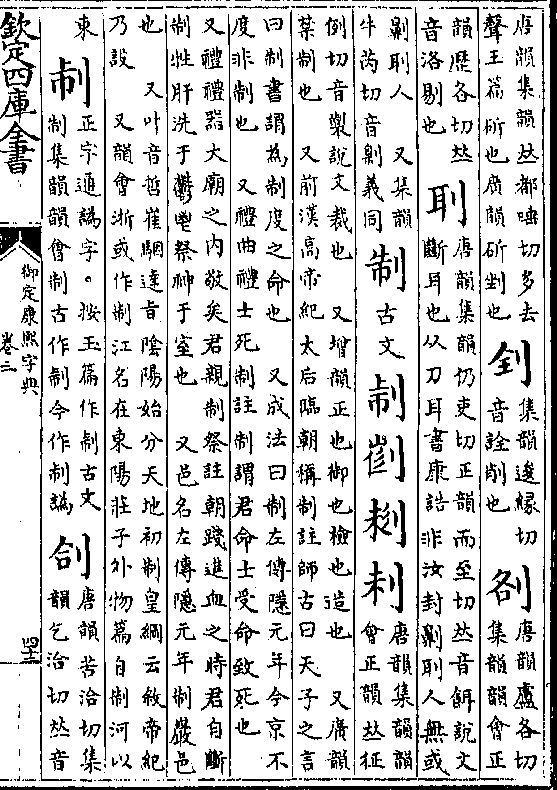 唐韻集韻𠀤都唾切多去
聲玉篇斫也廣韻斫剉也
集韻逡緣切
音詮削也
㓢
唐韻盧各切
集韻韻會正
韻歷各切𠀤
音洛剔也
刵
唐韻集韻仍吏切正韻而至切𠀤音餌說文
斷耳也从刀耳書康誥非汝封劓刵人無或
劓刵人　又集韻
牛芮切音劓義同
制
古文
唐韻集韻韻
會正韻𠀤征
例切音㫼說文裁也　又增韻正也御也檢也造也　又廣韻
禁制也　又前漢高帝紀太后臨朝稱制註師古曰天子之言
曰制書謂為制度之命也　又成法曰制左傳隱元年今京不
度非制也　又禮曲禮士死制註制謂君命士受命致死也
又禮禮器大廟之內敬矣君親制祭註朝踐進血之時君自斷
制牲肝洗于鬱鬯祭神于室也　又邑名左傳隱元年制巖邑
也　又叶音哲崔駰達旨陰陽始分天地初制皇綱云敘帝紀
乃設　又韻會浙或作制江名在東陽莊子外物篇自制河以
東
正字通譌字。按玉篇作制古文
制集韻韻會制古作制今作制譌
㓣
唐韻苦洽切集
韻乞洽切𠀤音
欽定四庫全書
御定康熙字典
卷三